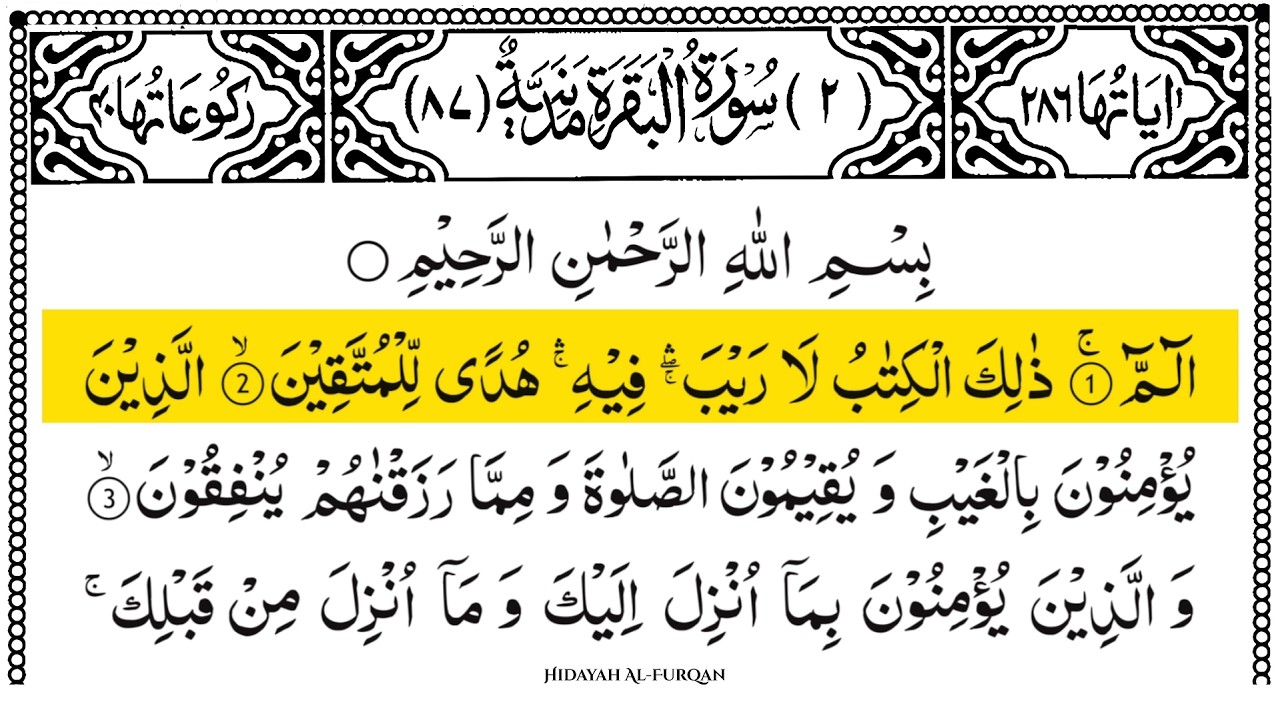 اٰيَاتُهَا ٢٨٦
(٢) سُوْرَةُ الْبَقَرَةِ مَدَنِيَّةٌ (٨٧)
رُكُوْعَاتُهَا ٤٠
بِسْمِ اللّٰهِ الرَّحْمٰنِ الرَّحِيْمِ ○
الٓـمّٓ ۚ ① ذٰلِكَ الْكِتٰبُ لَا رَيْبَ ۛۖۚ فِيْهِ ۛۚ هُدًى لِّلْمُتَّقِيْنَ ۙ ② الَّذِيْنَ
يُؤْمِنُوْنَ بِالْغَيْبِ وَ يُقِيْمُوْنَ الصَّلٰوةَ وَ مِمَّا رَزَقْنٰهُمْ يُنْفِقُوْنَ ۙ ③
وَ الَّذِيْنَ يُؤْمِنُوْنَ بِمَاۤ اُنْزِلَ اِلَيْكَ وَ مَاۤ اُنْزِلَ مِنْ قَبْلِكَ ۚ
HIDAYAH AL-FURQAN